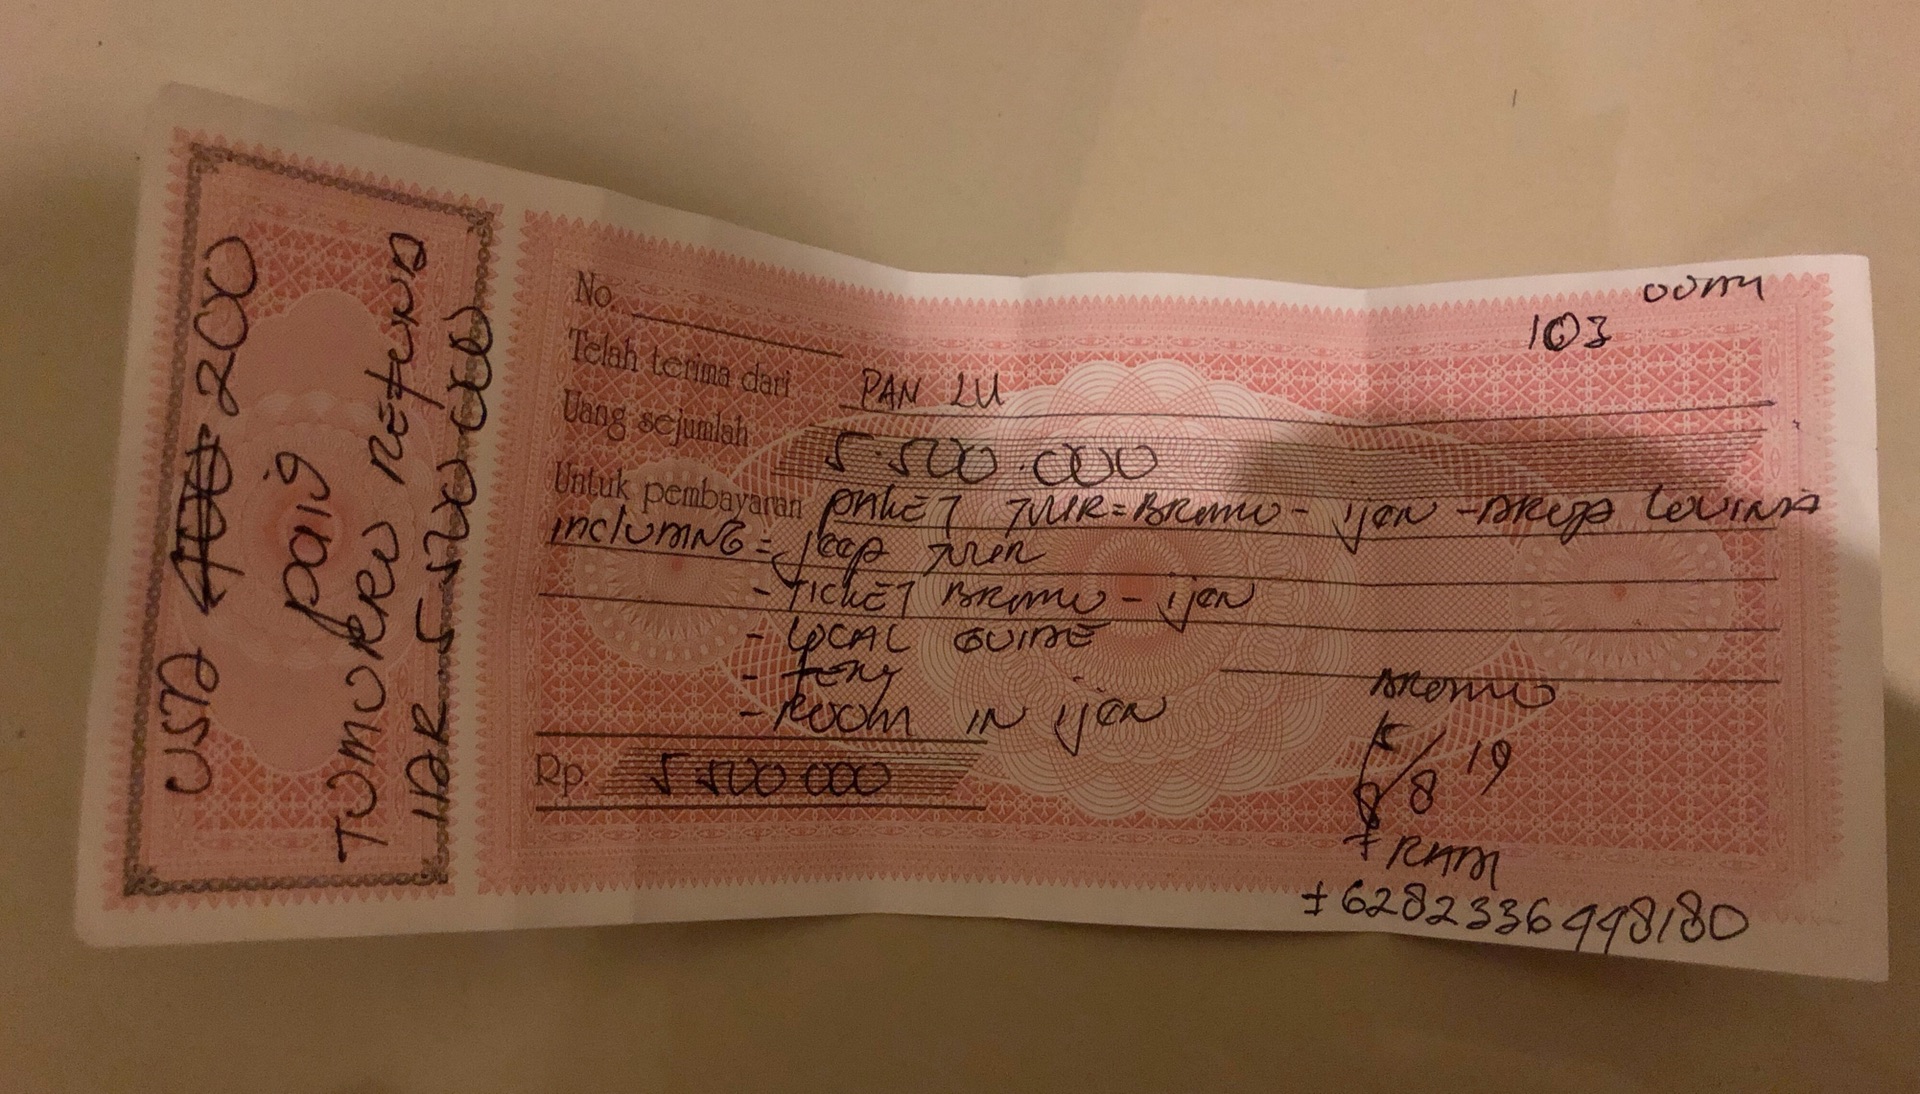 USD 400 200
paid
TUMORRO REFUND
IDR 5.500.000
OOM
103
No.
Telah terima dari PAN LU
Uang sejumlah 5.500.000
Untuk pembayaran PAKET TUUR = BROMO - IJEN - DROP LOVINA
INCLUDING = JEEP TUUR
- TICKET BROMO - IJEN
- LOCAL GUIDE
- FERY
- ROOM IN IJEN
Rp. 5.500.000
BROMO
8/8 19
RAM
+6282336448180